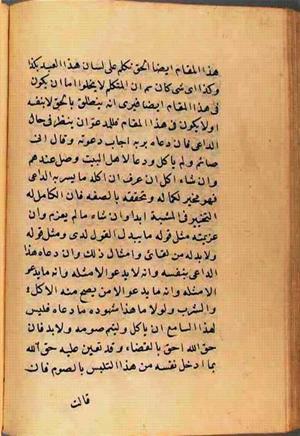 هذا المقام ايضا الحق تكلم على لسان هذا العبد بكذا
وكذا اى شى كان ثم ان المتكلم لا يخلوا اما ان يكون
فى هذا المقام ايضا فيرى انه ينطق بالحق لا بنفسه
او لا يكون فى هذا المقام فللمدعو ان ينظر فى حال
الداعى فان دعاه بربه اجاب دعوته وقال انى
صائم ولم ياكل ودعا لاهل البيت وصلى عندهم
وان شاء اكل ان عرف ان اكله مما يسر به الداعى
فهو مخير لكماله وتحققه بالصفه فان الكامل له
التخيير فى المشية ابدا وان شاء ما لم يعزم وان
عزم مثل قوله ما يبدل القول لدى ومثل قوله
ولا بد له من لقائى وامثال ذلك وان دعاه هذا
الداعى بنفسه وانه لا يدعو الا مثله وانه ما يدعو
الا مثله وانه ما يدعو الا من يصح منه الاكل
والشرب ولولا ما هذا شهوده ما دعاه فليس
لهذا السامع ان ياكل وليتم صومه ولا بد فان
حق الله احق بالقضاء وقد تعين عليه حق الله
بما ادخل نفسه من هذا التلبس بالصوم فان
قالت